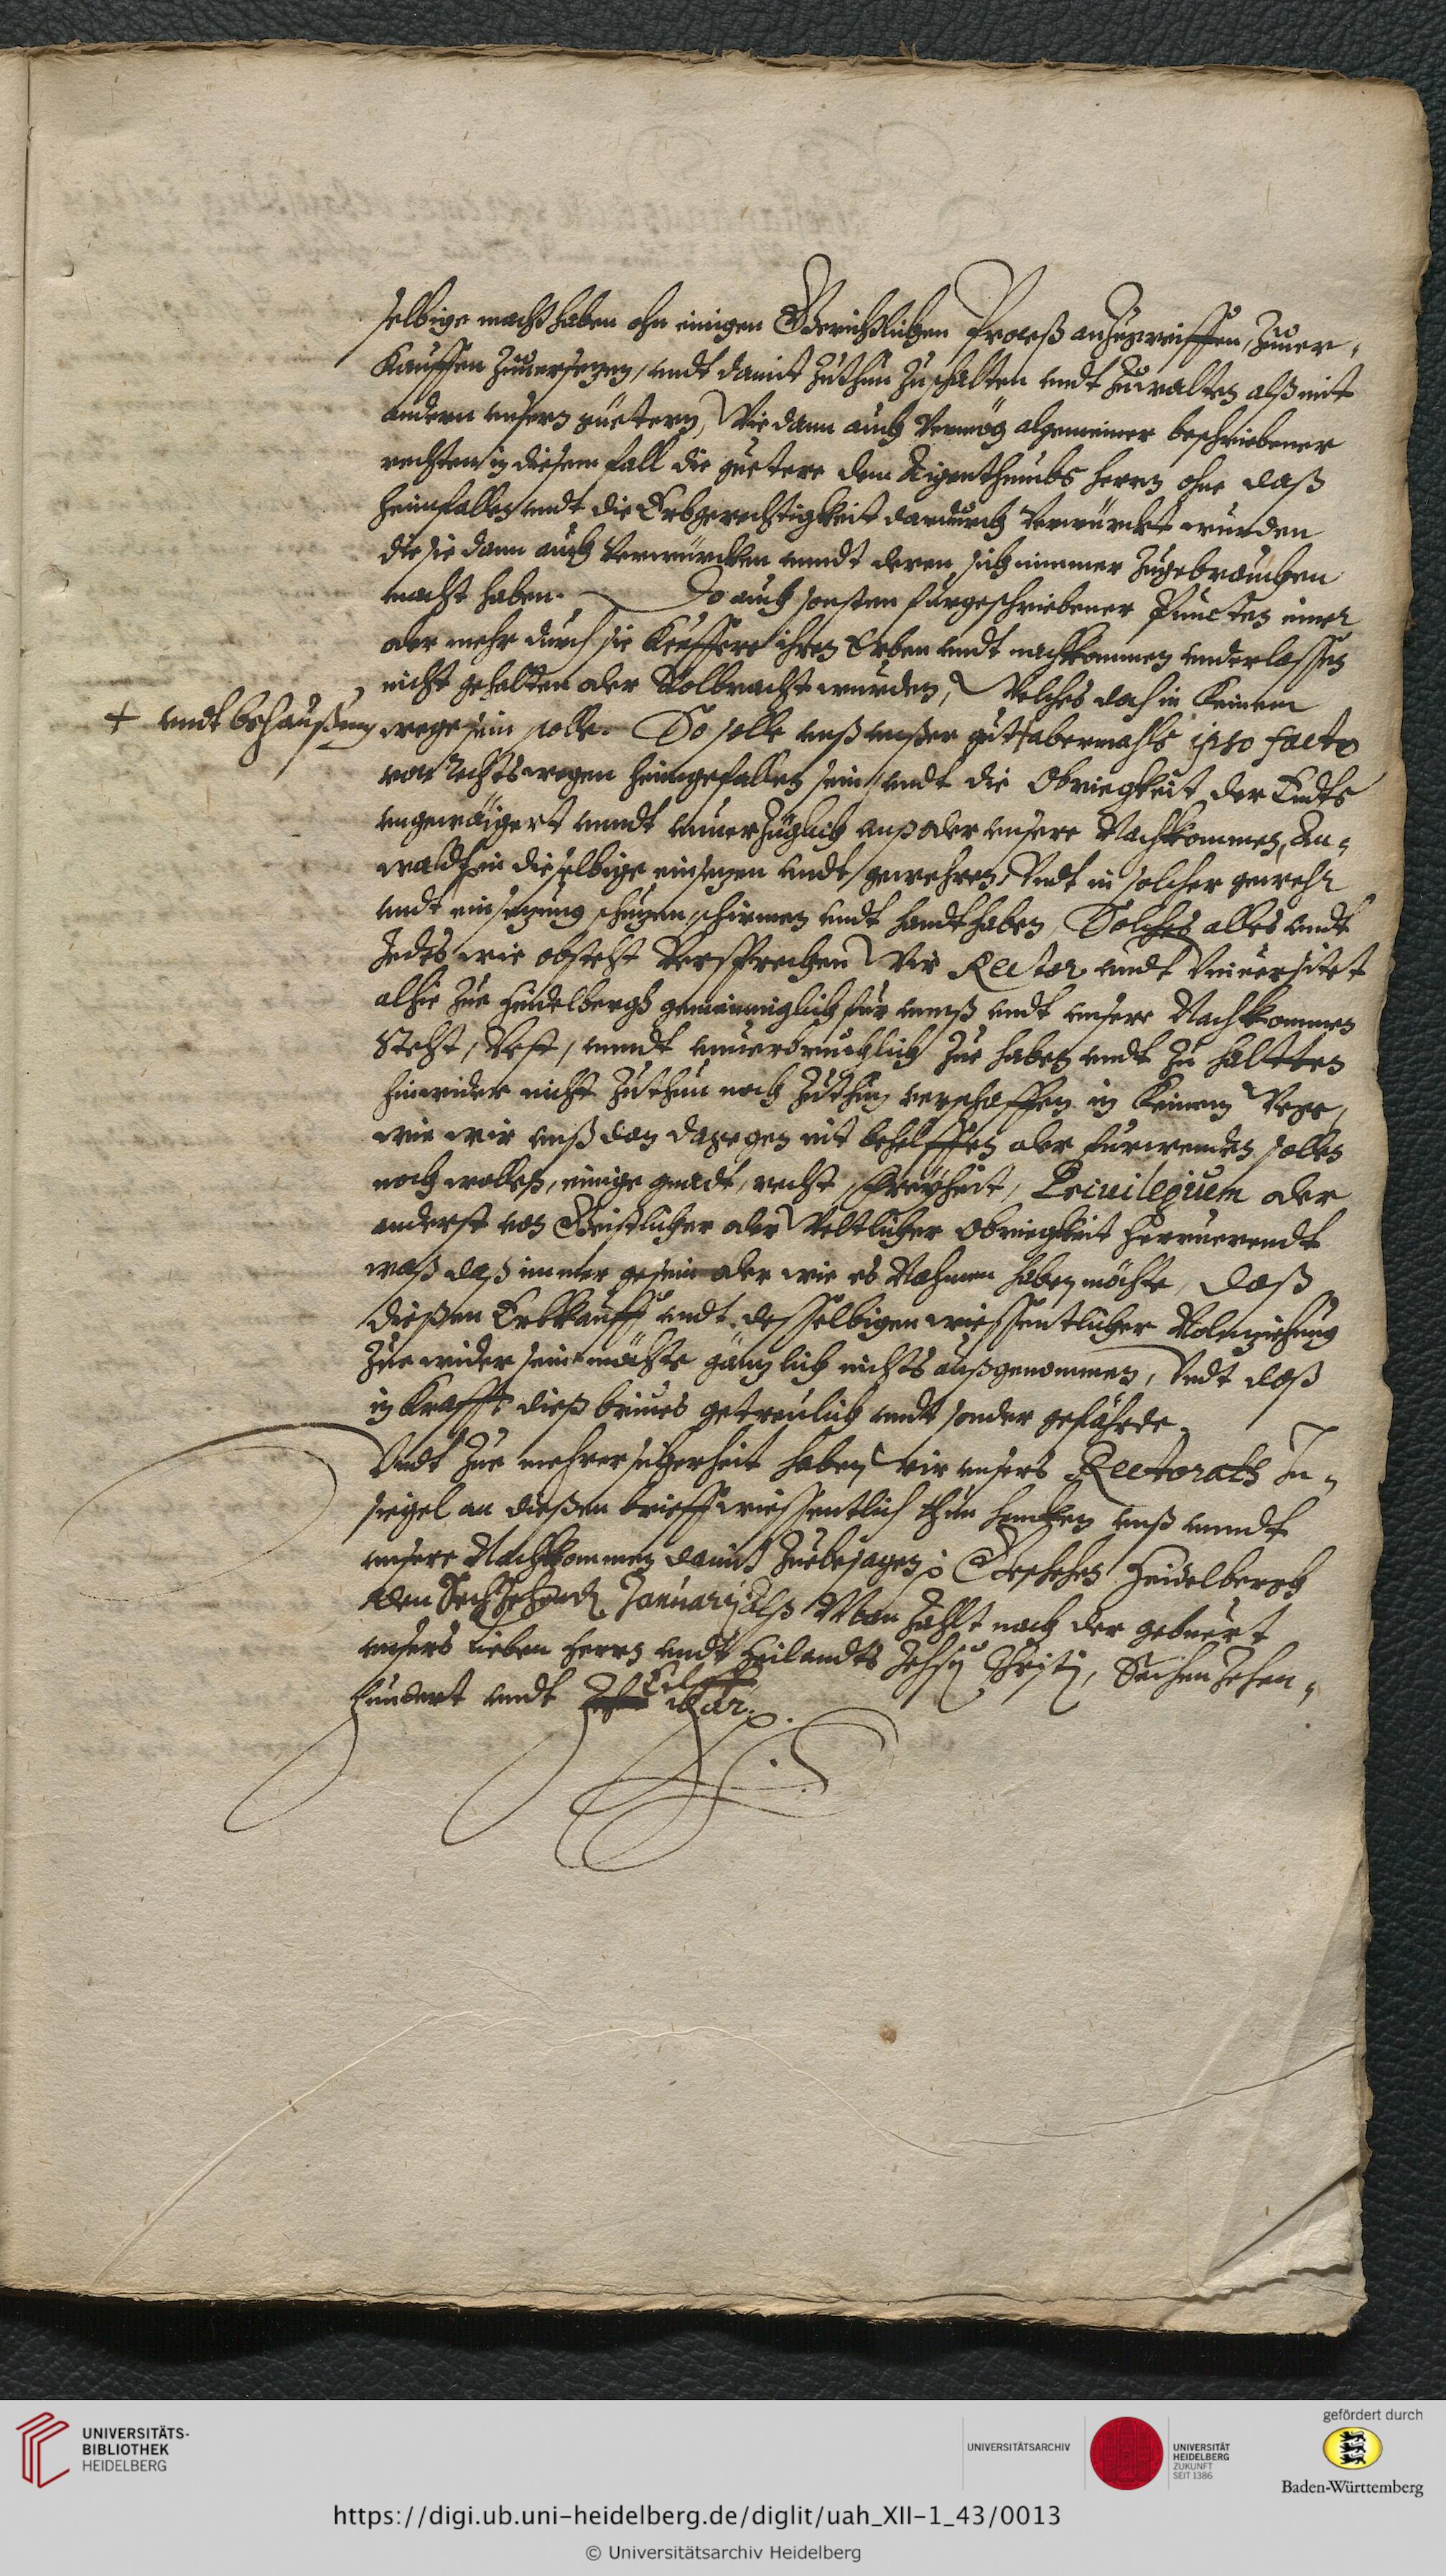 selbige macht haben ohn einigen Gerichtlichen Proceß anzugreiffen, Zuuer-
Kauffen Zuuersezen, undt damit Zuthun Zuschalten undt Zuwalten alß mit
andern unsern güetern, Wie dann auch Vermög algemeiner beschriebener
rechten in diesem fall die güetere dem Eigenthumbs herrn ohne daß
heimfallen undt die Erbgerechtigkeit dardurch Verwürckt wurden
die sie dann auch Verwürcken unndt deren sich nimmer Zugebrauchen
macht haben. So auch sonsten fürgeschriebener Puncten einer
oder mehr durch sie Keuffere ihren Erben undt nachkommen underlassen
nicht gehalten oder Volbracht wurden, Welches doch in Keinem
+ undt behaußung
wege sein solle. So solle unß unßer gut + abermahls ipso facto
von Rechtswegen heimgefallen sein, undt die Obriegkeit der Endts
ungewäigert unndt unuerZüglich unß oder unsere Nachkommen, An-
waldt in dieselbige einsezen undt gewehren, Undt in solcher gewehr
undt einsezung schuzen, schirmen undt handthaben, Solches alles undt
Jedes wie obsteht Versprechen Wir Rector undt Vniuersitet
alhie Zue Heidelbergh gemeiniglich für unnß undt unsere Nachkommen
Steht, Vest, unndt unuerbruchlich Zue haben undt Zu haltten
hinwider nicht Zuthun noch Zuthun verschaffen in Keinem Wege,
wie wir unß dan dagegen nit behelffen oder fürwenden sollen
noch wollen, einige gnadt, recht, freyheit, Priuilegium oder
anderst von Geistlicher oder Weltlicher Obriegkeit herruerendt
waß daß immer gesein oder wie es Nahmen haben möchte, daß
dießen Erbkauff undt desselbigen wiessentlicher Volnziehung
Zue wider sein möchte gänzlich nichts außgenommen, Undt daß
in Krafft dieß brieues getreulich undt sonder gefährde.
Undt Zue mehrer sicherheit haben wir unsers Rectorats In-
siegel an dießen brieff wiessentlich thun hencken unß unndt
unsere Nachkommen damit Zuebesagen; Geschehen Heidelbergh
den SechZehendn Januarij Alß Man Zahlt nach der geburt
unsers lieben herrn undt Heilandts Jehsu Christi, SechenZehen-
hundert undt Zehen Eilff Jar.
UNIVERSITÄTS-
BIBLIOTHEK
HEIDELBERG
UNIVERSITÄTSARCHIV
UNIVERSITÄT
HEIDELBERG
ZUKUNFT
SEIT 1386
gefördert durch
Baden-Württemberg
https://digi.ub.uni-heidelberg.de/diglit/uah_XII-1_43/0013
© Universitätsarchiv Heidelberg